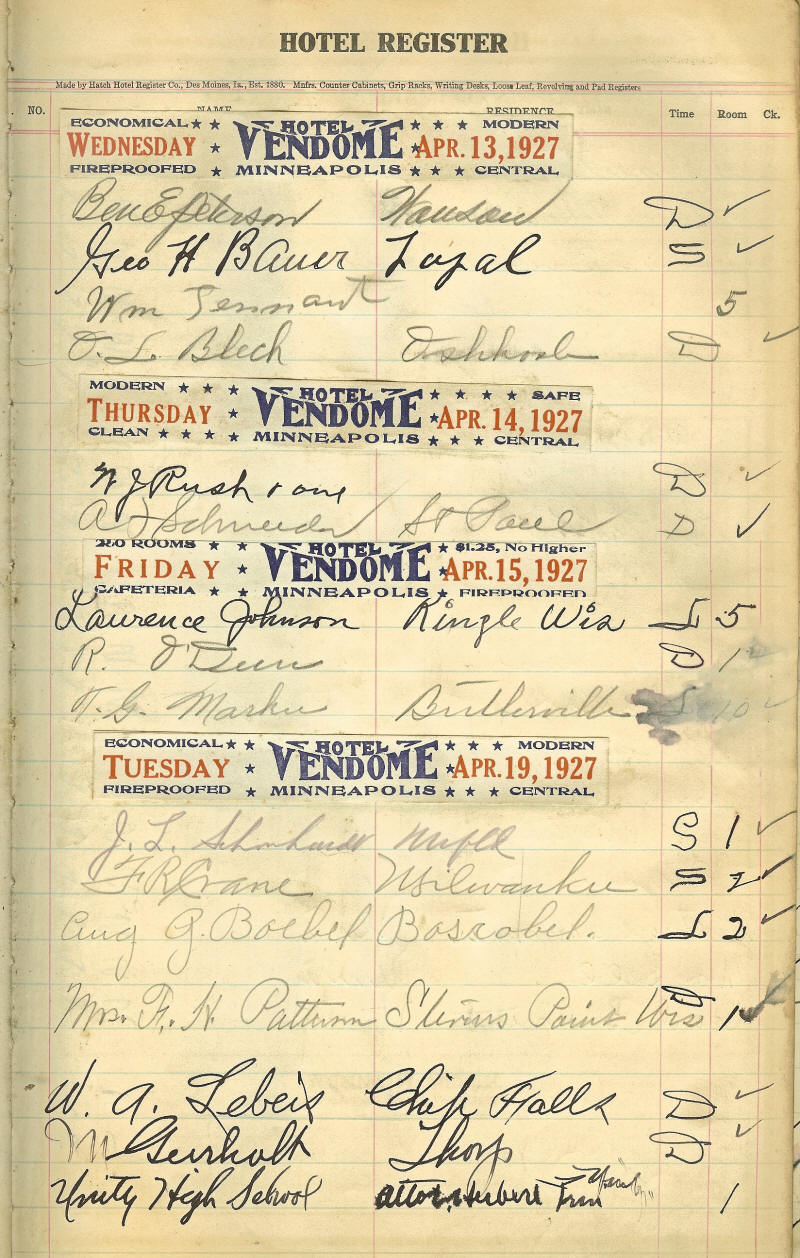 HOTEL REGISTER
Made by Hatch Hotel Register Co., Des Moines, Ia., Est. 1880. Mnfrs. Counter Cabinets, Grip Racks, Writing Desks, Loose Leaf, Revolving and Pad Registers
NO. NAME RESIDENCE Time Room Ck.
ECONOMICAL ★ ★ HOTEL ★ ★ ★ MODERN
WEDNESDAY ★ VENDOME ★ APR. 13, 1927
FIREPROOFED ★ MINNEAPOLIS ★ ★ ★ CENTRAL
Ben E Peterson Wausau D ✓
Geo H Bauer Loyal S ✓
Wm Tennant 5
O. L. Blech Oshkosh D ✓
MODERN ★ ★ ★ HOTEL ★ ★ ★ ★ SAFE
THURSDAY ★ VENDOME ★ APR. 14, 1927
CLEAN ★ ★ ★ ★ MINNEAPOLIS ★ ★ ★ CENTRAL
W J Rush & one D ✓
A J Schneider St Paul D ✓
250 ROOMS ★ ★ HOTEL ★ $1.25, No Higher
FRIDAY ★ VENDOME ★ APR. 15, 1927
CAFETERIA ★ MINNEAPOLIS ★ FIREPROOFED
Laurence Johnson Ringle Wis L 5
R. O'Dein D 1
T. G. Butlerville L 10 ✓
ECONOMICAL ★ ★ HOTEL ★ ★ ★ MODERN
TUESDAY ★ VENDOME ★ APR. 19, 1927
FIREPROOFED ★ MINNEAPOLIS ★ ★ ★ CENTRAL
J. L. S 1 ✓
F R Crane Milwaukee S 2 ✓
Aug G. Boebel Boscobel. L 2 ✓
Mrs. F. H. Patterson Stevens Point Wis D 1 ✓
W. A. Lebeis Chip Falls D ✓
M Thorp D ✓
Unity High School Herbert 1